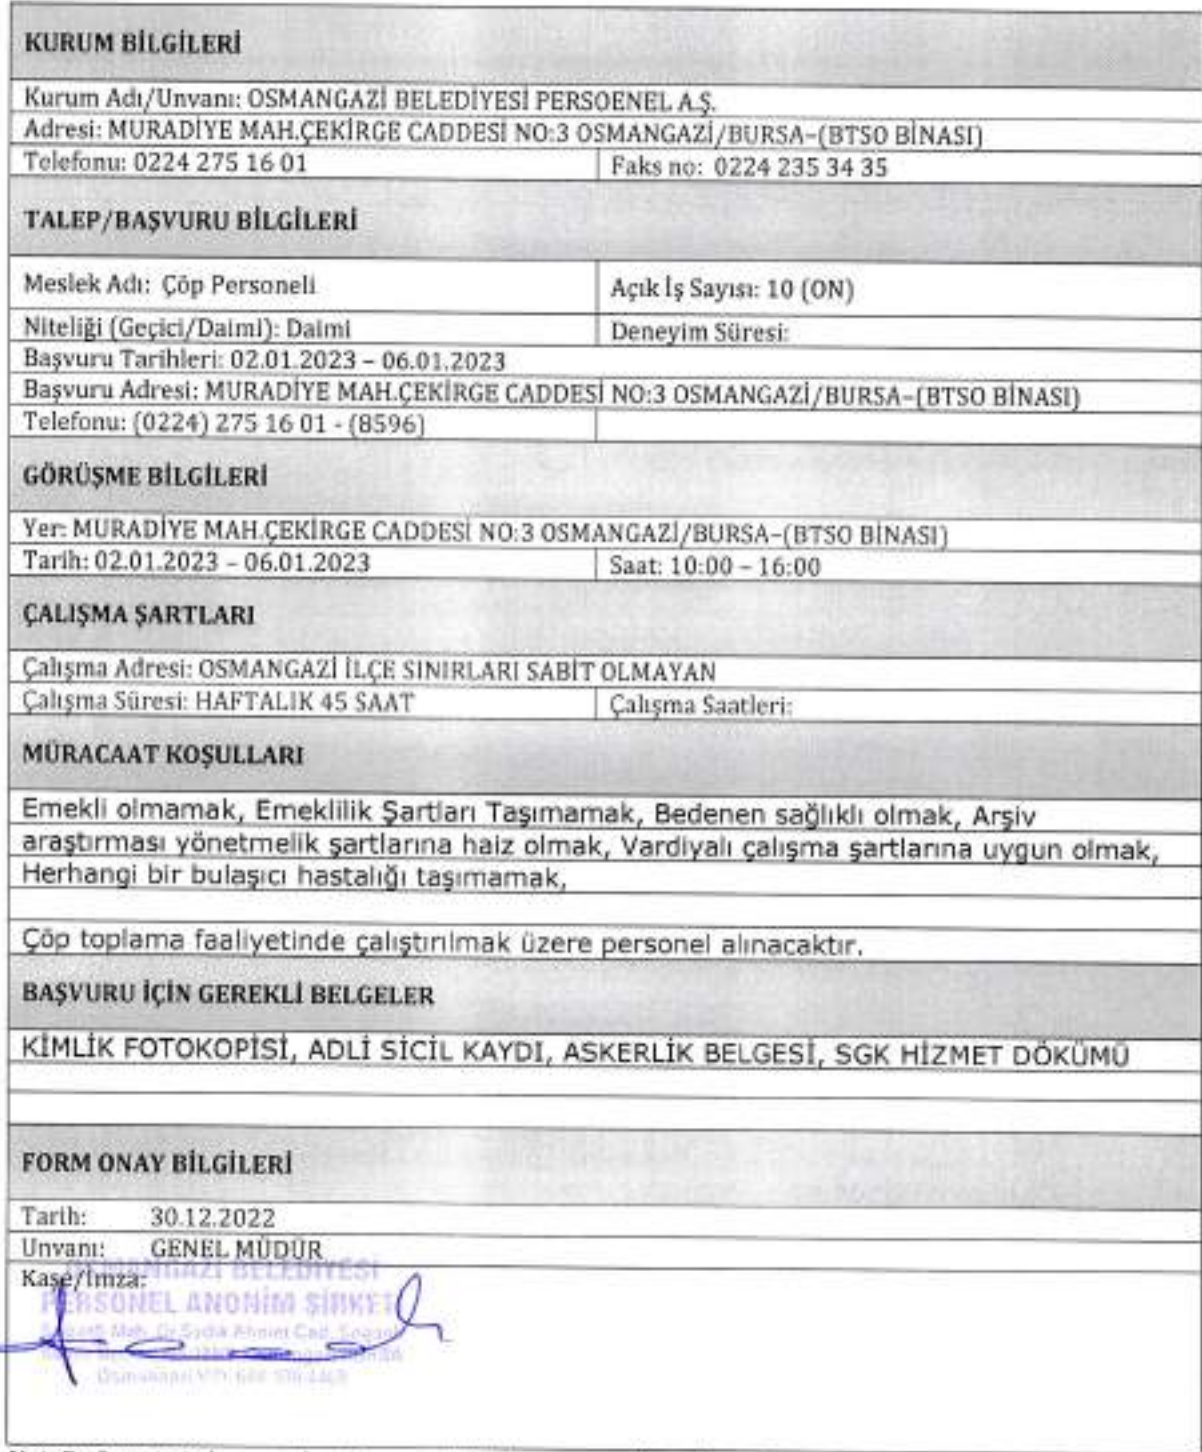 KURUM BİLGİLERİ
Kurum Adı/Unvanı: OSMANGAZİ BELEDİYESİ PERSOENEL A.Ş.
Adresi: MURADİYE MAH.ÇEKİRGE CADDESİ NO:3 OSMANGAZİ/BURSA–(BTSO BİNASI)
Telefonu: 0224 275 16 01 Faks no: 0224 235 34 35
TALEP/BAŞVURU BİLGİLERİ
Meslek Adı: Çöp Personeli Açık İş Sayısı: 10 (ON)
Niteliği (Geçici/Daimi): Daimi Deneyim Süresi:
Başvuru Tarihleri: 02.01.2023 – 06.01.2023
Başvuru Adresi: MURADİYE MAH.ÇEKİRGE CADDESİ NO:3 OSMANGAZİ/BURSA–(BTSO BİNASI)
Telefonu: (0224) 275 16 01 - (8596)
GÖRÜŞME BİLGİLERİ
Yer: MURADİYE MAH.ÇEKİRGE CADDESİ NO:3 OSMANGAZİ/BURSA–(BTSO BİNASI)
Tarih: 02.01.2023 – 06.01.2023 Saat: 10:00 – 16:00
ÇALIŞMA ŞARTLARI
Çalışma Adresi: OSMANGAZİ İLÇE SINIRLARI SABİT OLMAYAN
Çalışma Süresi: HAFTALIK 45 SAAT Çalışma Saatleri:
MÜRACAAT KOŞULLARI
Emekli olmamak, Emeklilik Şartları Taşımamak, Bedenen sağlıklı olmak, Arşiv
araştırması yönetmelik şartlarına haiz olmak, Vardiyalı çalışma şartlarına uygun olmak,
Herhangi bir bulaşıcı hastalığı taşımamak,
Çöp toplama faaliyetinde çalıştırılmak üzere personel alınacaktır.
BAŞVURU İÇİN GEREKLİ BELGELER
KİMLİK FOTOKOPİSİ, ADLİ SİCİL KAYDI, ASKERLİK BELGESİ, SGK HİZMET DÖKÜMÜ
FORM ONAY BİLGİLERİ
Tarih: 30.12.2022
Unvanı: GENEL MÜDÜR
Kaşe/İmza:
OSMANGAZİ BELEDİYESİ
PERSONEL ANONİM ŞİRKETİ
Mah. Dr.Sadık Ahmet Cad.